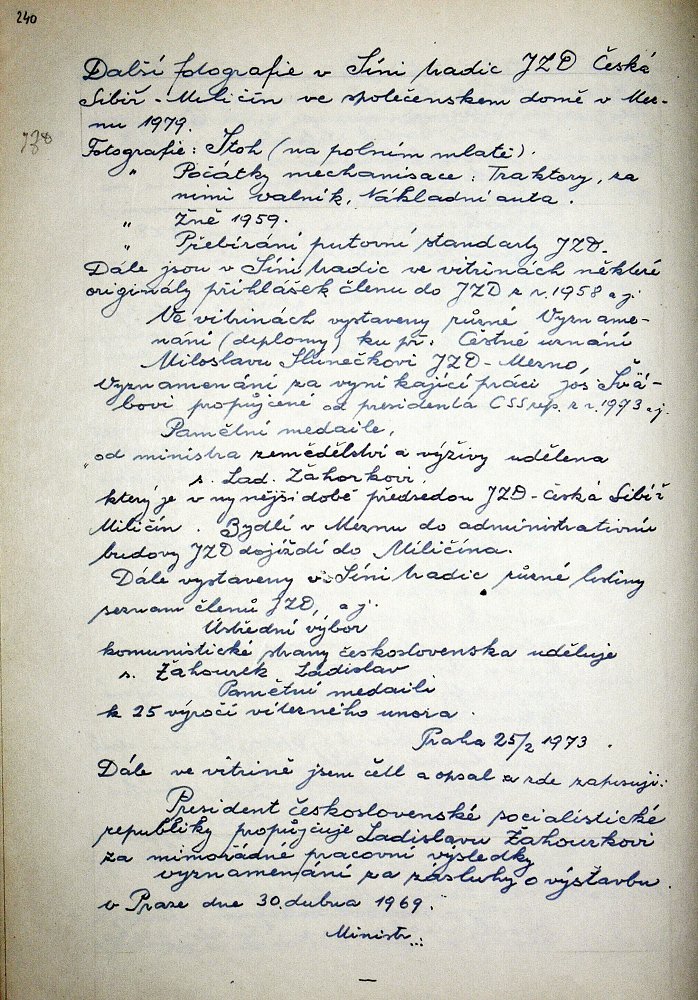 240
Další fotografie v Síni tradic JZD Česká
Sibiř - Miličín ve společenském domě v Mez-
nu 1979.
Fotografie: Stoh (na polním mlatě).
" Počátky mechanisace: Traktory, za
nimi valník, Nákladní auta.
" Žně 1959.
" Přebírání putovní standarty JZD.
Dále jsou v Síni tradic ve vitrinách některé
originály přihlášek členu do JZD z r. 1958 a j.
Ve vitrinách vystaveny různé Vyzname-
nání (diplomy) ku př: Čestné uznání
Miloslavu Slunečkovi JZD - Mezno,
Vyznamenání za vynikající práci jos. Švá-
bovi propůjčené od presidenta ČSSrep. z r. 1973 a j.
Pamětní medaile,
od ministra zemědělství a výživy udělena
s. Lad. Žáhorkovi,
který je v nynější době předsedou JZD - Česká Sibiř
Miličín. Bydlí v Meznu do administrativní
budovy JZD dojíždí do Miličína.
Dále vystaveny v Síni tradic různé listiny
seznam členů JZD, a j.
Ústřední výbor
komunistické strany československa uděluje
s. Žahourek Ladislav
Pamětní medaili
k 25 výročí vítězného unora.
Praha 25/2 1973.
Dále ve vitrině jsem četl a opsal a zde zapisuji:
President československé socialistické
republiky propůjčuje Ladislavu Žahourkovi
za mimořádné pracovní výsledky
vyznamenání za zásluhy o výstavbu.
v Praze dne 30. dubna 1969.
Ministr...